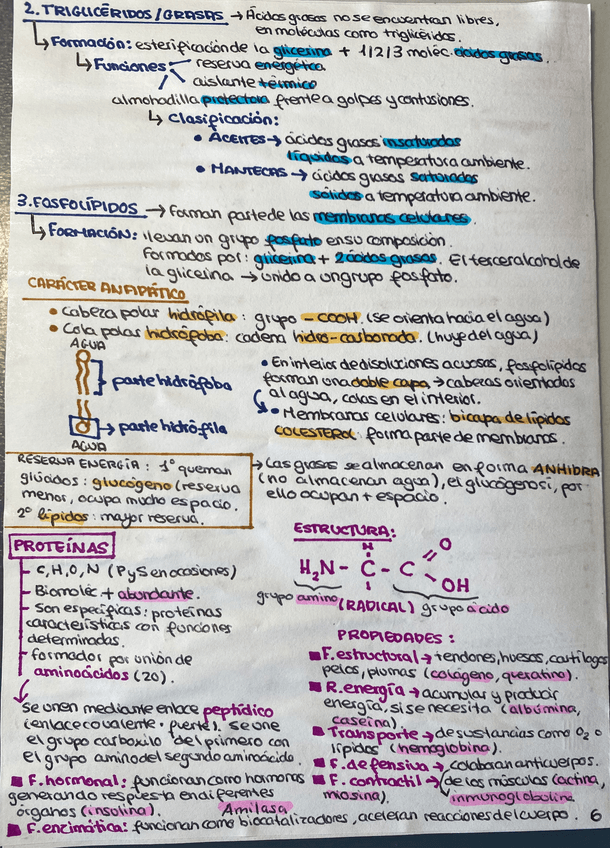 2. TRIGLICÉRIDOS/GRASAS → Ácidos grasos no se encuentran libres,
en moléculas como triglicéridos.
↳ Formación: esterificación de la glicerina + 1/2/3 moléc. ácidos grasos.
↳ Funciones reserva energética
aislante térmico
almohadilla protectora frente a golpes y contusiones.
↳ Clasificación:
• ACEITES → ácidos grasos insaturados
líquidos a temperatura ambiente.
• MANTECAS → ácidos grasos saturados
sólidos a temperatura ambiente.
3. FOSFOLÍPIDOS → Forman parte de las membranas celulares.
↳ FORMACIÓN: llevan un grupo fosfato en su composición.
Formados por: glicerina + 2 ácidos grasos. El tercer alcohol de
la glicerina → unido a un grupo fosfato.
CARÁCTER ANFIPÁTICO
• Cabeza polar hidrófila: grupo -COOH. (se orienta hacia el agua)
• Cola polar hidrófoba: cadena hidro-carbonada. (huye del agua)
AGUA
parte hidrófoba
→ parte hidró-fila
AGUA
• En interior de disoluciones acuosas, fosfolípidos
forman una doble capa, → cabezas orientadas
al agua, colas en el interior.
• Membranas celulares: bicapa de lípidos
COLESTEROL: forma parte de membranas.
RESERVA ENERGÍA: 1º queman
glúcidos: glucógeno (reserva
menor, ocupa mucho espacio.
2º lípidos: mayor reserva.
→ Las grasas se almacenan en forma ANHIDRA
(no almacenan agua), el glucógeno sí, por
ello ocupan + espacio.
PROTEÍNAS
- C, H, O, N (P y S en ocasiones)
- Biomoléc + abundante.
- Son específicas: proteínas
características con funciones
determinadas.
- formador por unión de
aminoácidos (20).
Se unen mediante enlace peptídico
(enlace covalente · fuerte). se une
el grupo carboxilo del primero con
el grupo amino del segundo aminoácido.
■ F. hormonal: funcionan como hormonas
generando respuesta en diferentes
órganos (insulina).
ESTRUCTURA:
H
O
H₂N - C - C
OH
grupo amino (RADICAL) grupo ácido
PROPIEDADES:
■ F. estructural → tendones, huesos, cartílagos
pelos, plumas (colágeno, queratina).
■ R. energía → acumular y producir
energía, si se necesita (albúmina,
caseína).
■ Transporte → de sustancias como O₂ o
lípidos (hemoglobina).
■ F. defensiva → colaboran anticuerpos.
■ F. contráctil → (de los músculos (actina,
miosina). inmunoglobulina.
Amilasa
■ F. enzimática: funcionan como biocatalizadores, aceleran reacciones del cuerpo. 6